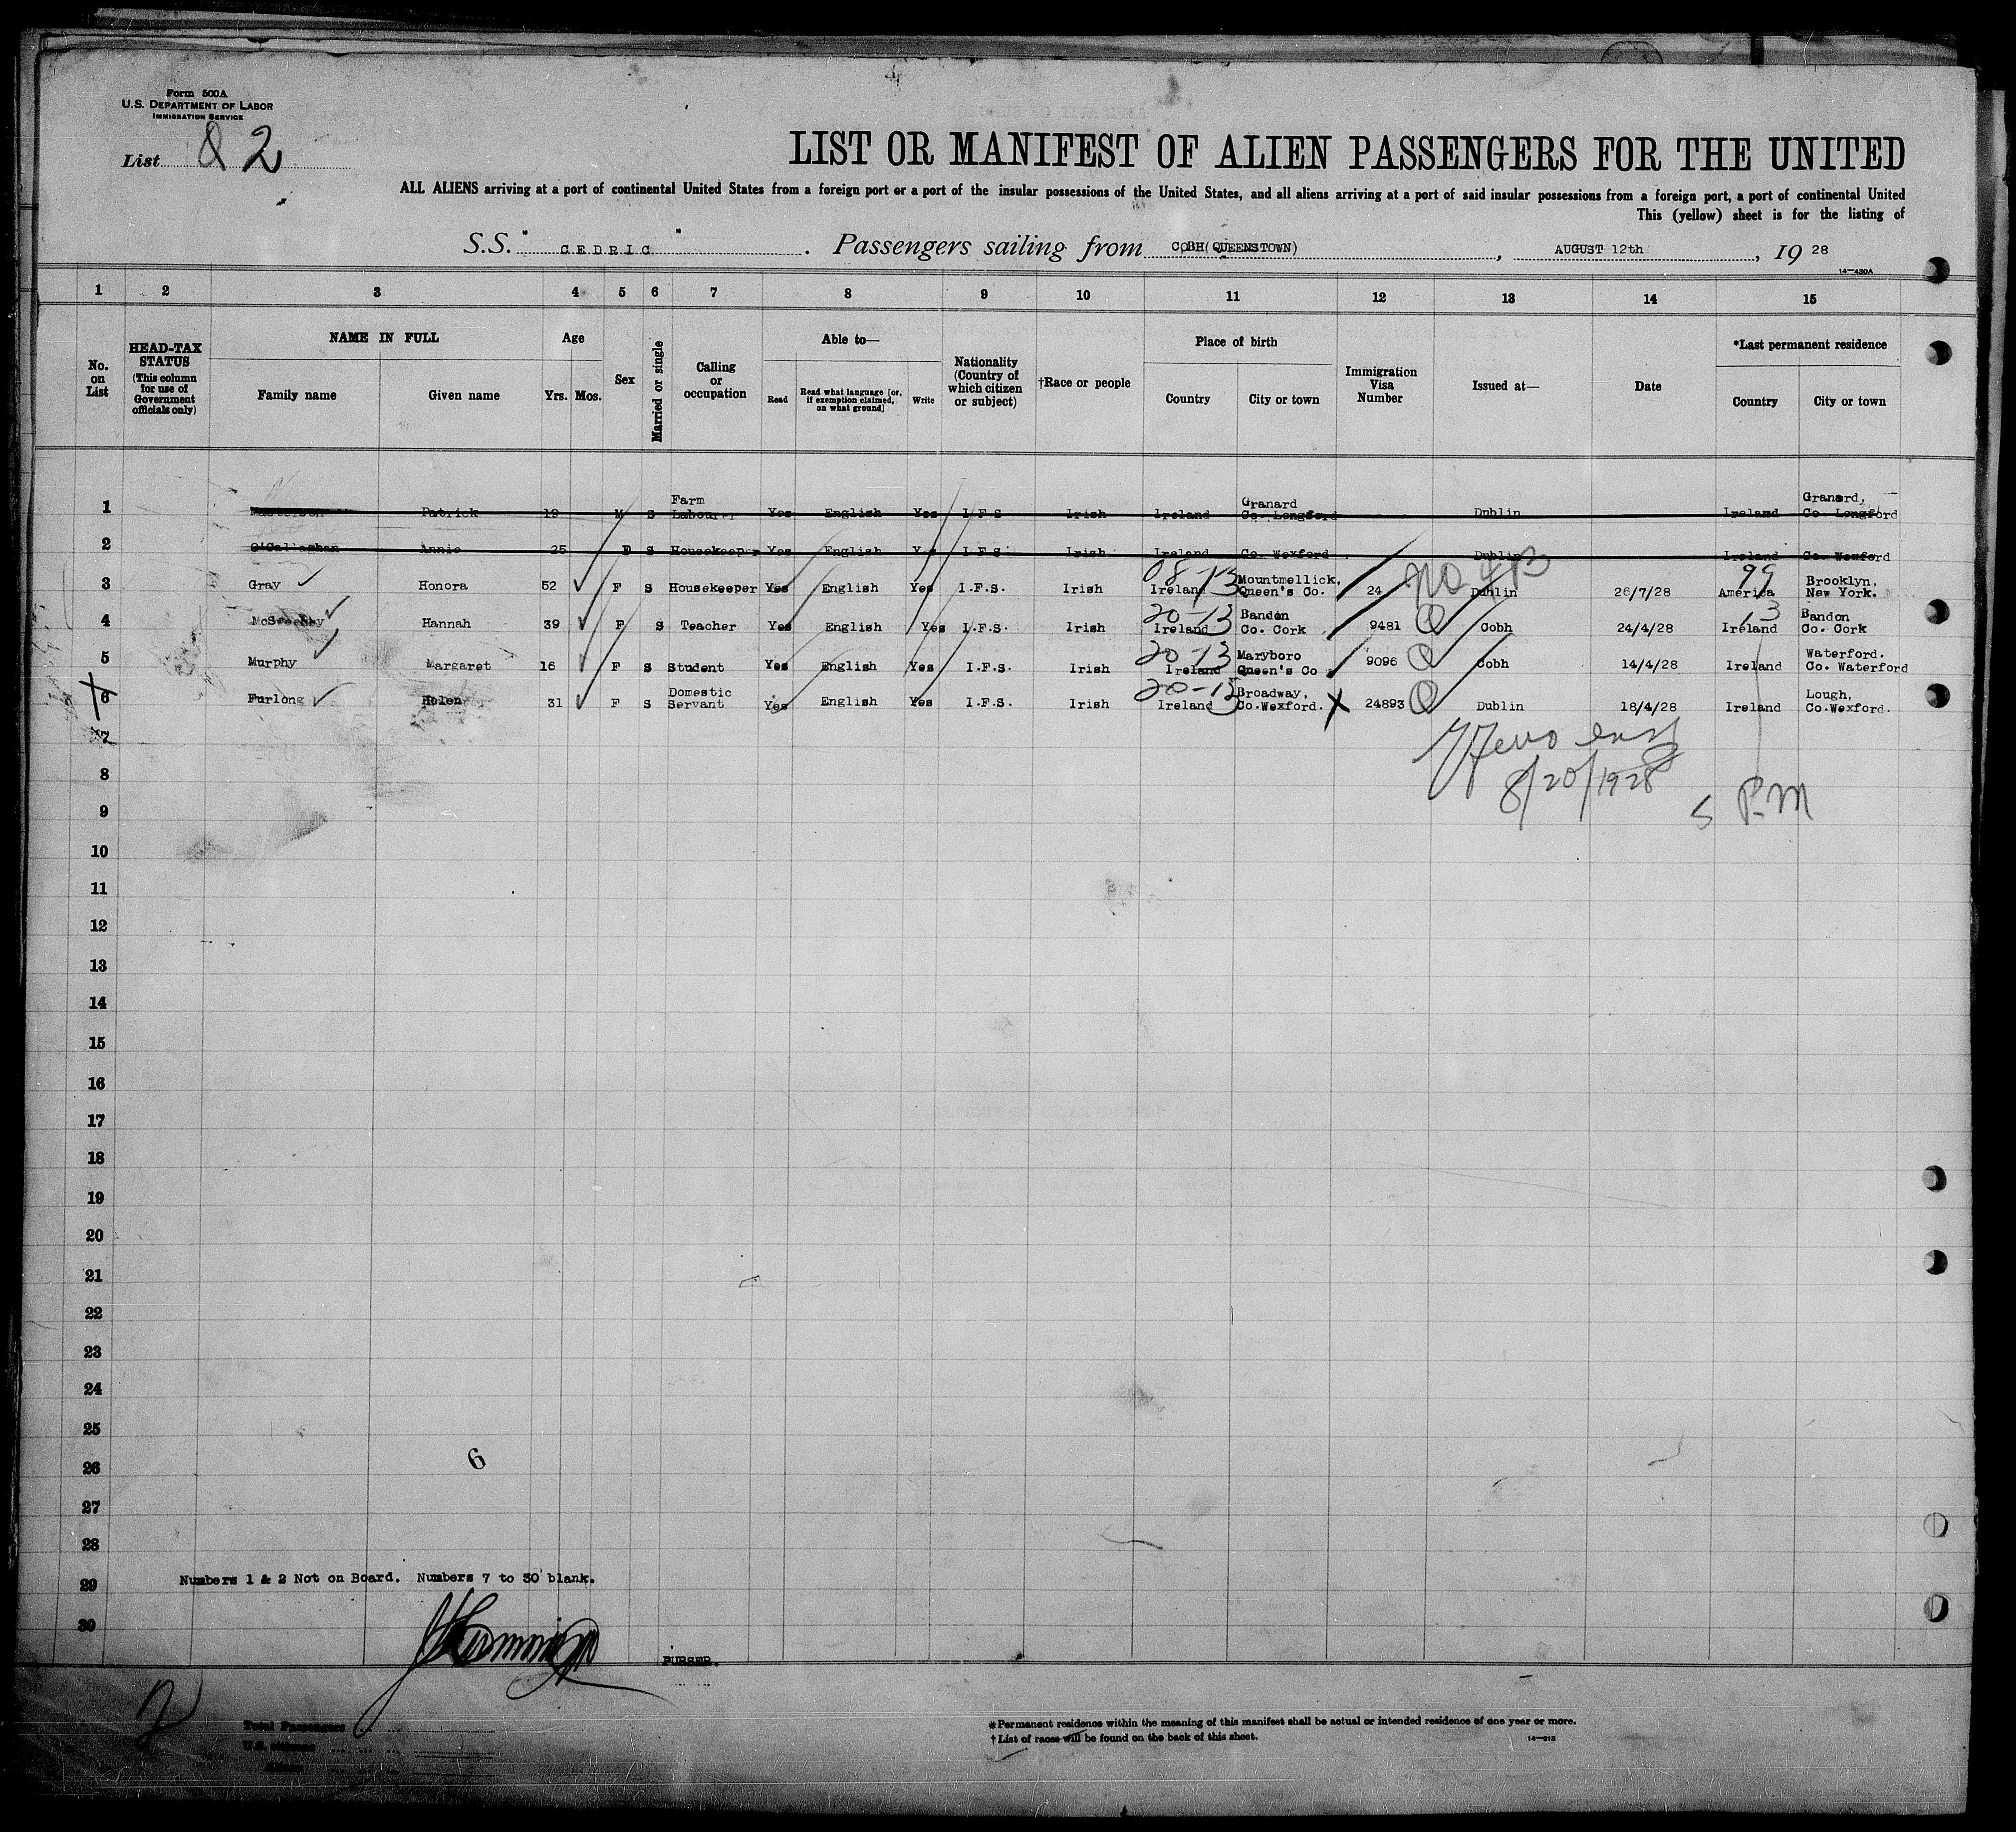 Form 500A
U.S. DEPARTMENT OF LABOR
IMMIGRATION SERVICE
List 2
LIST OR MANIFEST OF ALIEN PASSENGERS FOR THE UNITED
ALL ALIENS arriving at a port of continental United States from a foreign port or a port of the insular possessions of the United States, and all aliens arriving at a port of said insular possessions from a foreign port, a port of continental United
This (yellow) sheet is for the listing of
S.S. " CEDRIC " . Passengers sailing from COBH(QUEENSTOWN) , AUGUST 12th , 19 28
14—430A
1 2 3 4 5 6 7 8 9 10 11 12 13 14 15
No. on List
HEAD-TAX STATUS (This column for use of Government officials only)
NAME IN FULL
Family name Given name
Age
Yrs. Mos.
Sex
Married or single
Calling or occupation
Able to—
Read Read what language [or, if exemption claimed, on what ground] Write
Nationality (Country of which citizen or subject)
†Race or people
Place of birth
Country City or town
Immigration Visa Number
Issued at—
Date
*Last permanent residence
Country City or town
1 Masterson Patrick 19 M S Farm Labourer Yes English Yes I.F.S Irish Ireland Granard Co. Longford Dublin Ireland Granard, Co. Longford
2 O'Callaghan Annie 25 F S Housekeeper Yes English Yes I.F.S. Irish Ireland Co. Wexford Dublin Ireland Co. Wexford
3 Gray Honora 52 F S Housekeeper Yes English Yes I.F.S. Irish 08-13 Ireland Mountmellick, Queen's Co. 24 NQ 4B Dublin 26/7/28 99 America Brooklyn, New York.
4 McSweeney Hannah 39 F S Teacher Yes English Yes I.F.S. Irish 20-13 Ireland Bandon Co. Cork 9481 Q Cobh 24/4/28 13 Ireland Bandon Co. Cork
5 Murphy Margaret 16 F S Student Yes English Yes I.F.S. Irish 20-13 Ireland Maryboro Queen's Co 9096 Q Cobh 14/4/28 Ireland Waterford. Co. Waterford
X 6 Furlong Helen 31 F S Domestic Servant Yes English Yes I.F.S. Irish 20-13 Ireland Broadway, Co.Wexford. X 24893 Q Dublin 18/4/28 Ireland Lough, Co.Wexford.
7
8
8/20/1928
5 P.M
9
10
11
12
13
14
15
16
17
18
19
20
21
22
23
24
25
26
6
27
28
29
Numbers 1 & 2 Not on Board. Numbers 7 to 30 blank.
30
PURSER.
2
Total Passengers
U.S. citizens
Aliens
*Permanent residence within the meaning of this manifest shall be actual or intended residence of one year or more.
†List of races will be found on the back of this sheet.
14—213